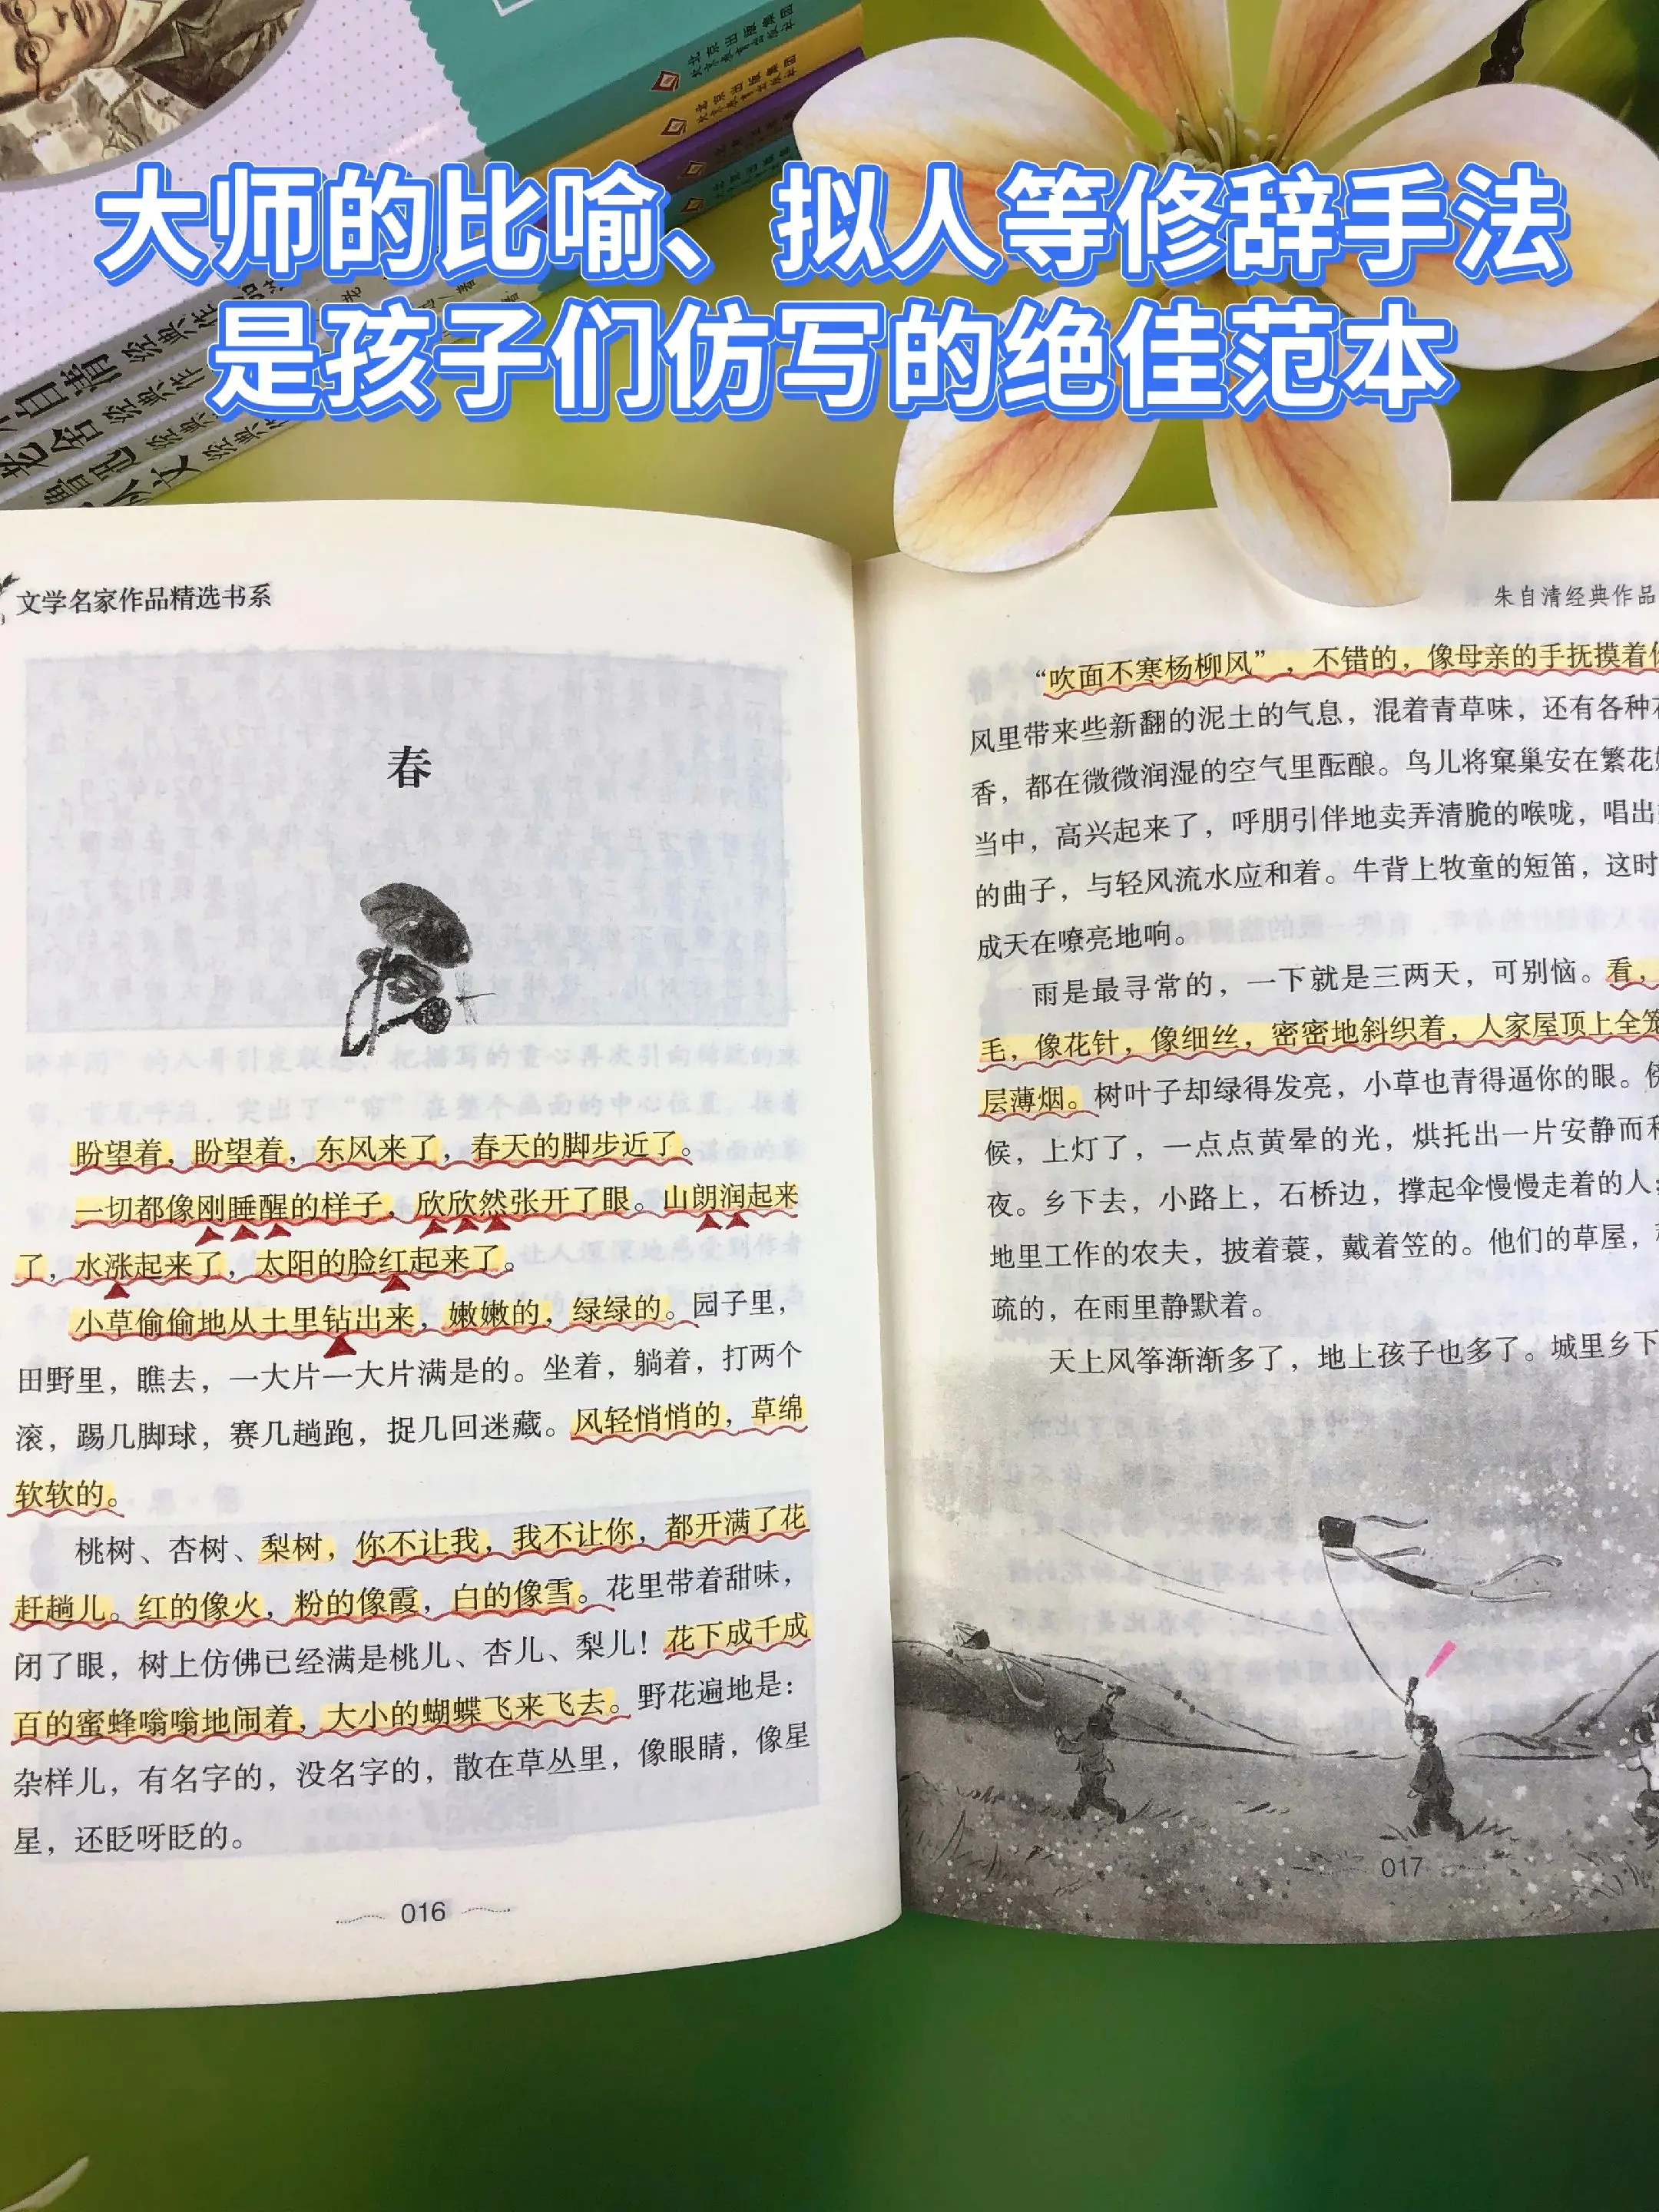 北京出版集团
北京教育出版社
北京出版集团
北京教育出版社
大师的比喻、拟人等修辞手法
是孩子们仿写的绝佳范本
自清 经典作
老舍 经典作
鲁迅 经典
从文 经典
文学名家作品精选书系
春
盼望着，盼望着，东风来了，春天的脚步近了。
一切都像刚睡醒的样子，欣欣然张开了眼。山朗润起来
了，水涨起来了，太阳的脸红起来了。
小草偷偷地从土里钻出来，嫩嫩的，绿绿的。园子里，
田野里，瞧去，一大片一大片满是的。坐着，躺着，打两个
滚，踢几脚球，赛几趟跑，捉几回迷藏。风轻悄悄的，草绵
软软的。
桃树、杏树、梨树，你不让我，我不让你，都开满了花
赶趟儿。红的像火，粉的像霞，白的像雪。花里带着甜味，
闭了眼，树上仿佛已经满是桃儿、杏儿、梨儿！花下成千成
百的蜜蜂嗡嗡地闹着，大小的蝴蝶飞来飞去。野花遍地是：
杂样儿，有名字的，没名字的，散在草丛里，像眼睛，像星
星，还眨呀眨的。
016
朱自清经典作品
“吹面不寒杨柳风”，不错的，像母亲的手抚摸着
风里带来些新翻的泥土的气息，混着青草味，还有各种
香，都在微微润湿的空气里酝酿。鸟儿将窠巢安在繁花
当中，高兴起来了，呼朋引伴地卖弄清脆的喉咙，唱出
的曲子，与轻风流水应和着。牛背上牧童的短笛，这时
成天在嘹亮地响。
雨是最寻常的，一下就是三两天，可别恼。看，
毛，像花针，像细丝，密密地斜织着，人家屋顶上全笼
层薄烟。树叶子却绿得发亮，小草也青得逼你的眼。
候，上灯了，一点点黄晕的光，烘托出一片安静而
夜。乡下去，小路上，石桥边，撑起伞慢慢走着的人；
地里工作的农夫，披着蓑，戴着笠的。他们的草屋，
疏的，在雨里静默着。
天上风筝渐渐多了，地上孩子也多了。城里乡下
017